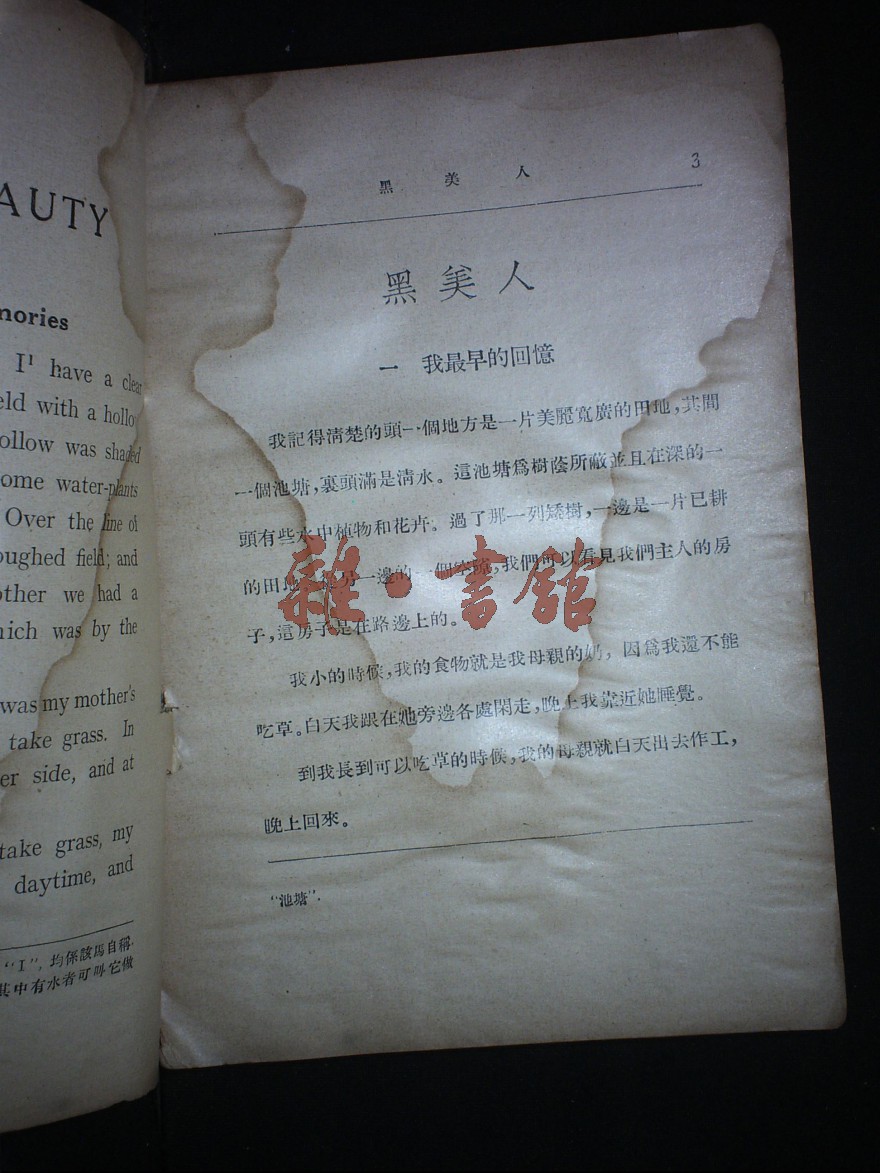 AUTY
mories
I¹ have a clear
eld with a hollow
ollow was shaded
ome water-plants
Over the line of
oughed field; and
other we had a
hich was by the
was my mother's
take grass. In
er side, and at
take grass, my
daytime, and
“I”, 均係該馬自稱.
其中有水者可叫它做
黑 美 人 3
黑美人
一 我最早的回憶
我記得清楚的頭一個地方是一片美麗寬廣的田地,其間
一個池塘,裏頭滿是清水。這池塘爲樹蔭所蔽並且在深的一
頭有些水中植物和花卉。過了那一列矮樹,一邊是一片已耕
的田地 另一邊的一個 我們可以看見我們主人的房
子,這房子是在路邊上的。
我小的時候,我的食物就是我母親的奶,因爲我還不能
吃草。白天我跟在她旁邊各處閑走,晚上我靠近她睡覺。
到我長到可以吃草的時候,我的母親就白天出去作工,
晚上回來。
“池塘”.
雜·書館